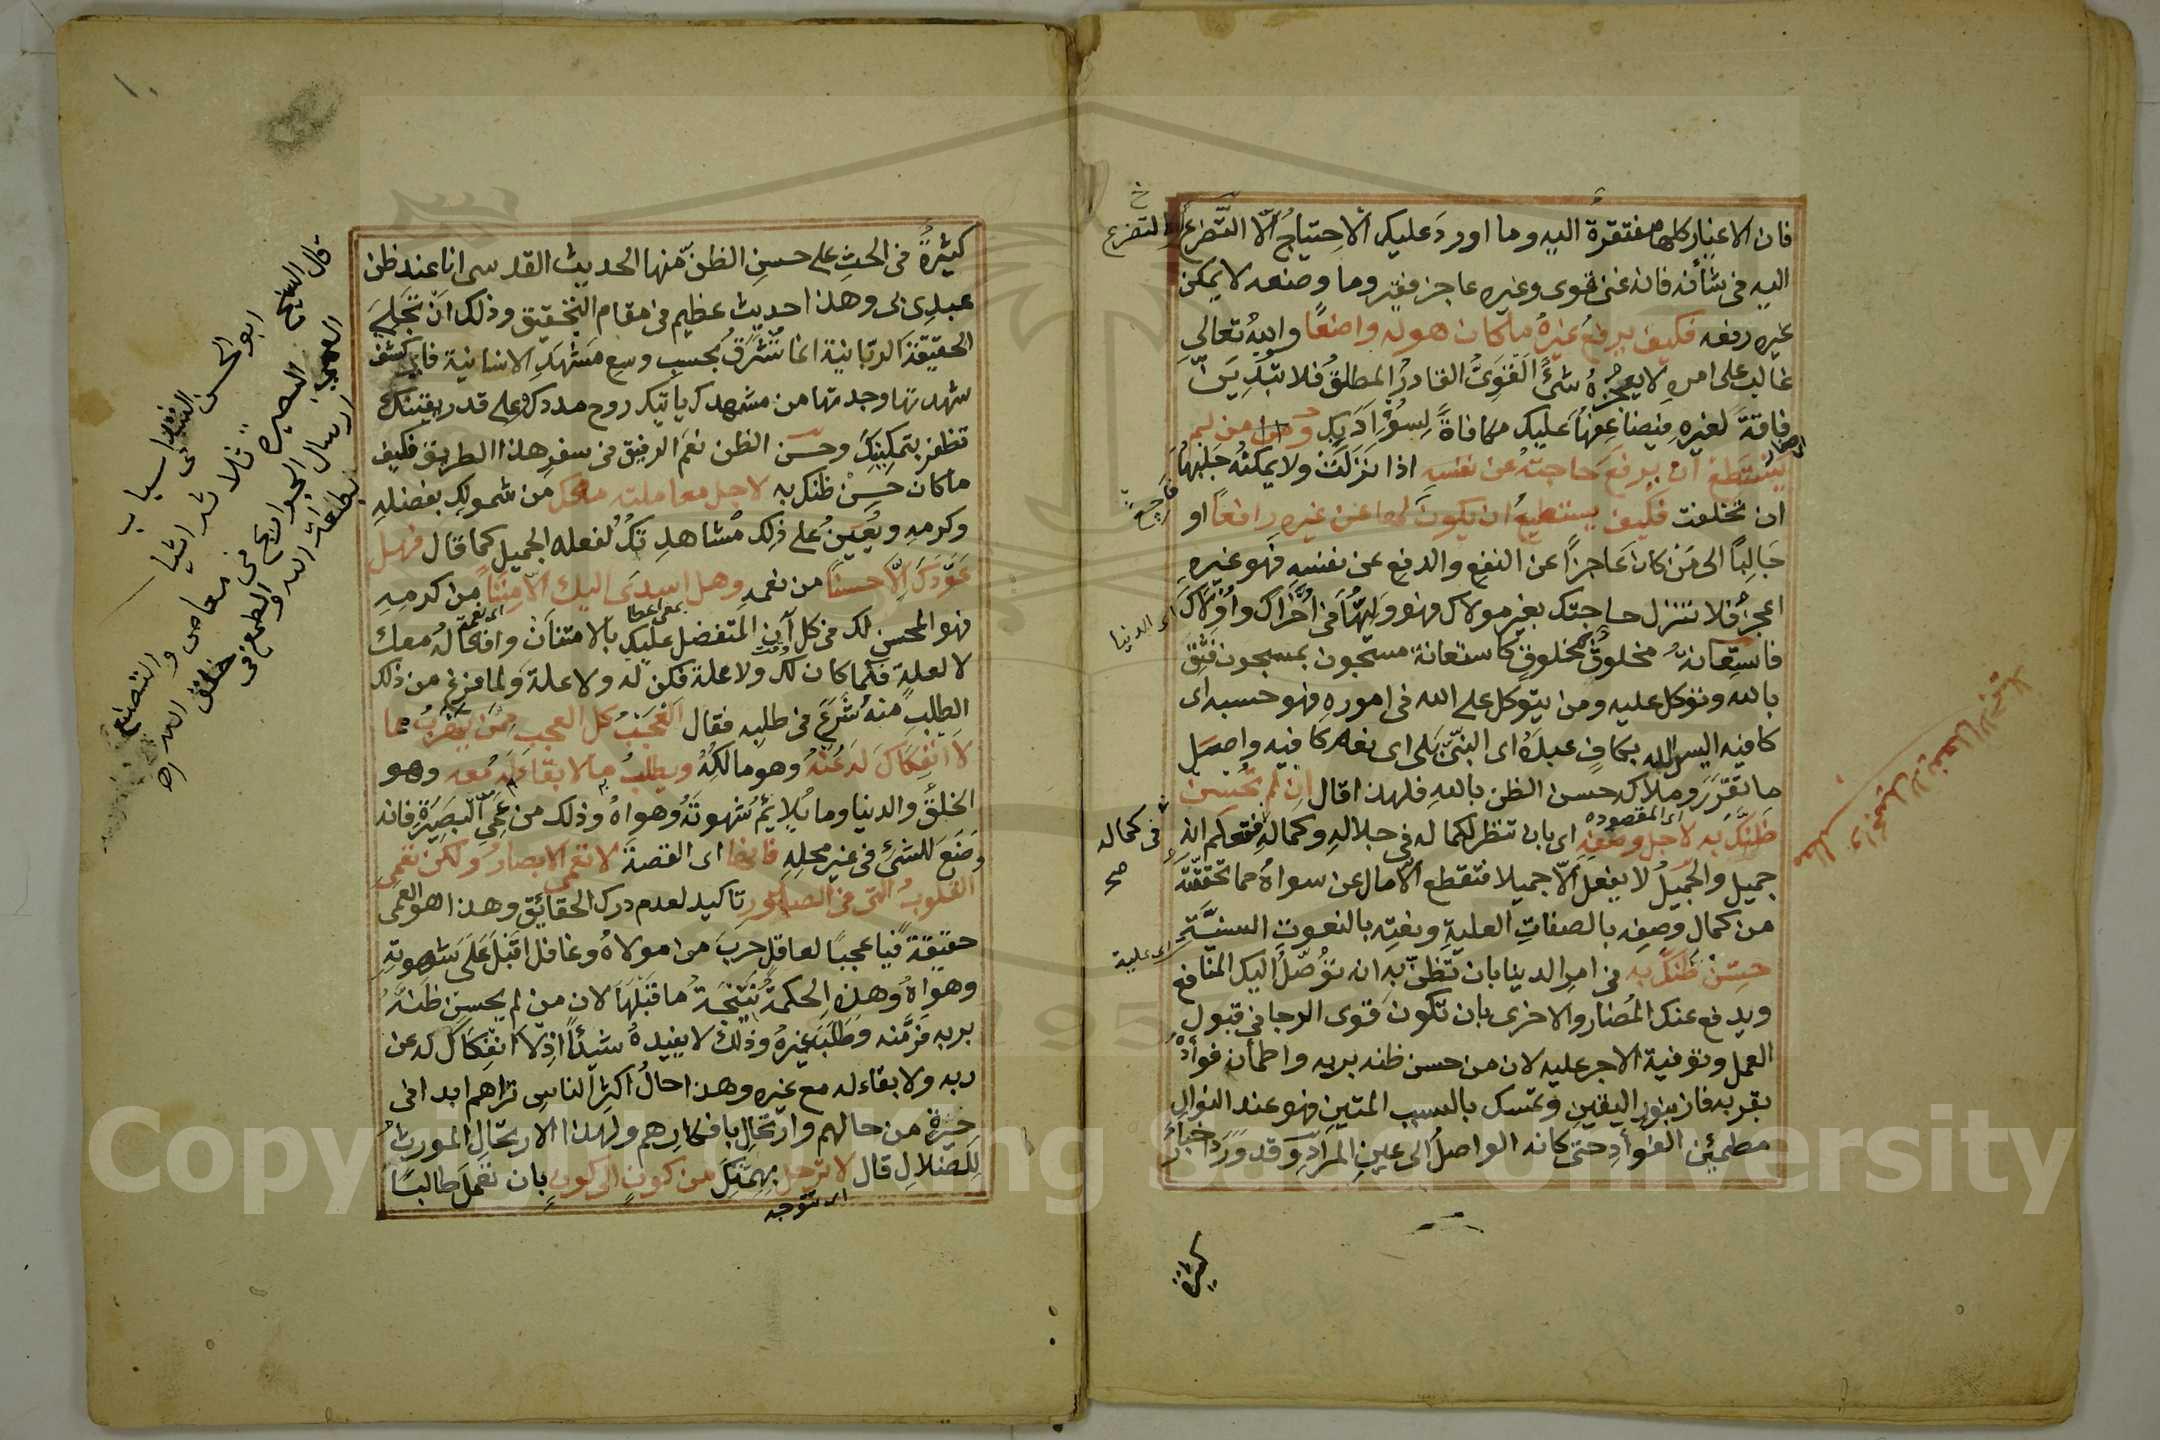 فان الاغيار كلها مفتقرة اليه وما اورد عليك الاحتياج الا التضرع
اليه فى شأنه فانه غنى قوى وغيره عاجز فقير وما وضعه لا يمكن
غيره رفعه فكيف يرفع غيره ما كان هو له واضعا والله تعالى
غالب على امره لا يعجزه شئ القوى القادر المطلق فلا تبدين
فاقة لغيره فيضاعفها عليك مكافاة لسؤ ادبك ومن لم
يستطع ان يرفع حاجته عن نفسه اذا نزلت ولا يمكنه جلبها
ان تخلفت فكيف يستطيع ان يكون لها عن غيره رافعا او
جالبا الى من كان عاجزا عن النفع والدفع عن نفسه فهو عن غيره
اعجز فلا تنزل حاجتك بغير مولاك فهو وليها فى اخراك واولاك
فاستعانة مخلوق بمخلوق كاستعانة مسجون بمسجون فثق
بالله وتوكل عليه ومن يتوكل على الله فى اموره فهو حسبه اى
كافيه اليس الله بكاف عبده اى النبى بلى اى نعم كافيه واصل
ما تقرر وملاكه حسن الظن بالله فلهذا قال ان لم تحسن
ظنك به لاجل وصفه اى بان تنظر لكماله فى جلاله وكماله فتعلم انه
جميل والجميل لا يفعل الا جميلا فتقطع الآمال عن سواه مما تحققته
من كمال وصفه بالصفات العلية ونعته بالنعوت السنية
حسن ظنك به فى امر الدنيا بان تظن به انه توصل اليك المنافع
ويدفع عنك المضار والاخرى بان تكون قوى الرجا فى قبول
العمل وتوفية الاجر عليه لان من حسن ظنه بربه واطمأن فواده
بقربه فاز بنور اليقين وتمسك بالسبب المتين فهو عند النوال
مطمئن الفواد حتى كانه الواصل الى عين المراد وقد ورد اخبار
التضرع
اى الدنيا
فى كماله
صح
اى علية
اى المقصوده
كثيرة
كثيرة فى الحث على حسن الظن منها الحديث القدسى انا عند ظن
عبدى بى وهذا حديث عظيم فى مقام التحقيق وذلك ان تجلى
الحقيقة الربانية انما تشرق بحسب وسع مشهدك الانسانية فان كشف
شهدتها وجدتها من مشهدك ياتيك روح مددك على قدر يقينك
تظفر بتمكينك وحسن الظن نعم الرفيق فى سفر هذا الطريق فكيف
ما كان حسن ظنك به لاجل معاملته معك من شمولك بفضله
وكرمه ويعين على ذلك مشاهدتك لفعله الجميل كما قال فهل
عودك الا حسنا من نعمه وهل اسدى اليك الا مننا من كرمه
فهو المحسن لك فى كل آن المتفضل عليك بالامتنان وافعاله معك
لا لعلة فكما كان لك ولا علة فكن له ولا علة ولما فرغ من ذلك
الطلب منه شرع فى طلبه فقال العجب كل العجب ممن يهرب مما
لا انفكاك له عنه وهو مالكه ويطلب ما لا بقاء له معه وهو
الخلق والدنيا وما يلايم شهوته وهواه وذلك من عمى البصيرة فانه
وضع للشئ فى غير محله فانها اى القصة لا تعمى الابصار ولكن تعمى
القلوب التى فى الصدور تاكيد لعدم درك الحقايق وهذا هو العمى
حقيقة فيا عجبا لعاقل هرب من مولاه وغافل اقبل على شهوته
وهواه وهذه الحكمة نتيجة ما قبلها لان من لم يحسن ظنه
بربه فر منه وطلب غيره وذلك لا يفيده شيئا اذ لا انفكاك له عن
ربه ولا بقاء له مع غيره وهذا حال اكثر الناس تراهم ابدا فى
حيرة من حالهم وارتحال بافكارهم ولهذا الارتحال المورث
للضلال قال لا ترحل بهمتك من كون الى كون بان تعمل طالبا
بمعنى اعطا
اى تتوجه
قال الشيخ ابو الحسن الشاذلى
البصيرة ثلاثة اشيا
ارسال الجوارح فى معاصى الله والتصنع
بطاعة الله والطمع فى خلق الله